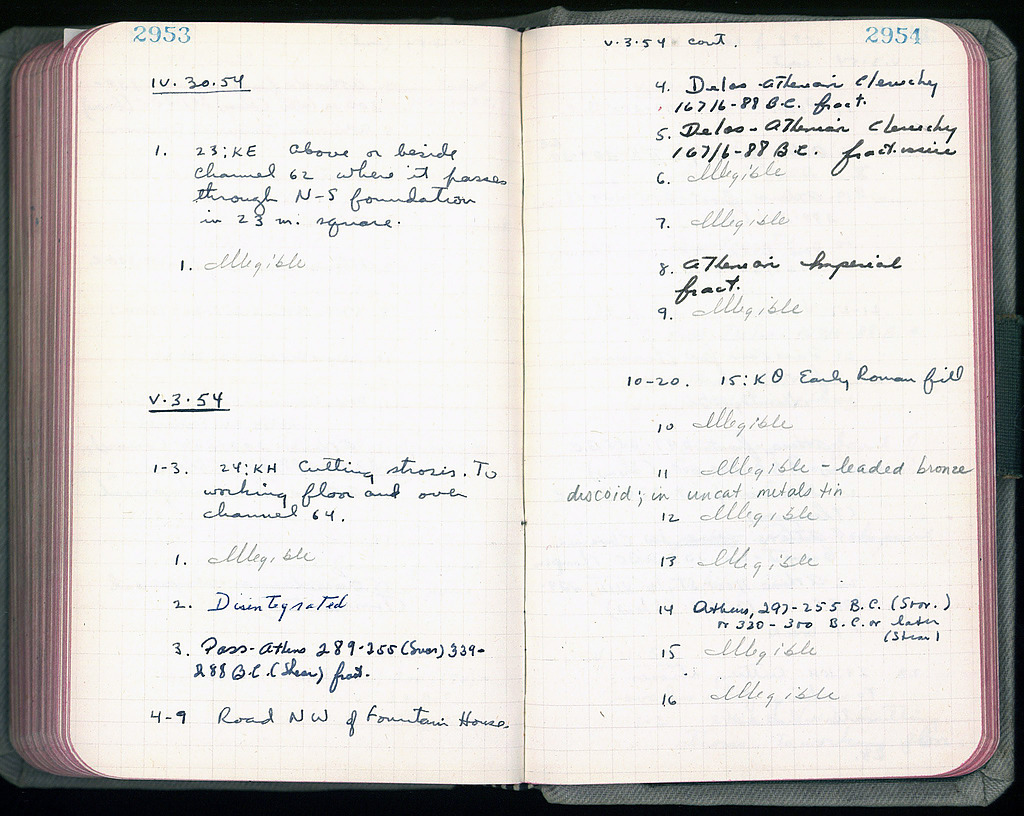 2953
IV. 30. 54
1. 23:KE above or beside
channel 62 where it passes
through N-S foundation
in 23 m. square.
1. Illegible
V. 3. 54
1-3. 24:KH Cutting strosis. To
working floor and over
channel 64.
1. Illegible
2. Disintegrated
3. Poss. Athens 289-255 (Svor.) 339-
288 B.C. (Shear) fract.
4-9 Road NW of Fountain House
2954
V. 3. 54 cont.
4. Delos - Athenian Cleruchy
167/6-88 B.C. fract.
5. Delos - Athenian Cleruchy
167/6-88 B.C. fract.
6. Illegible
7. Illegible
8. Athenian Imperial
fract.
9. Illegible
10-20. 15:KΘ Early Roman fill
10 Illegible
11 Illegible - leaded bronze
discoid; in uncat metals tin
12 Illegible
13 Illegible
14 Athens, 297-255 B.C. (Svor.)
or 330-300 B.C. or later
(Shear)
15 Illegible
16 Illegible